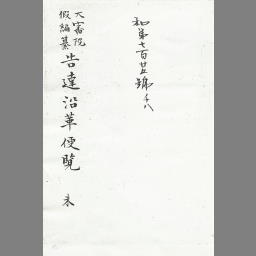 和第七百廿五號ノ八
大審院
假編纂
告達沿革便覧 未